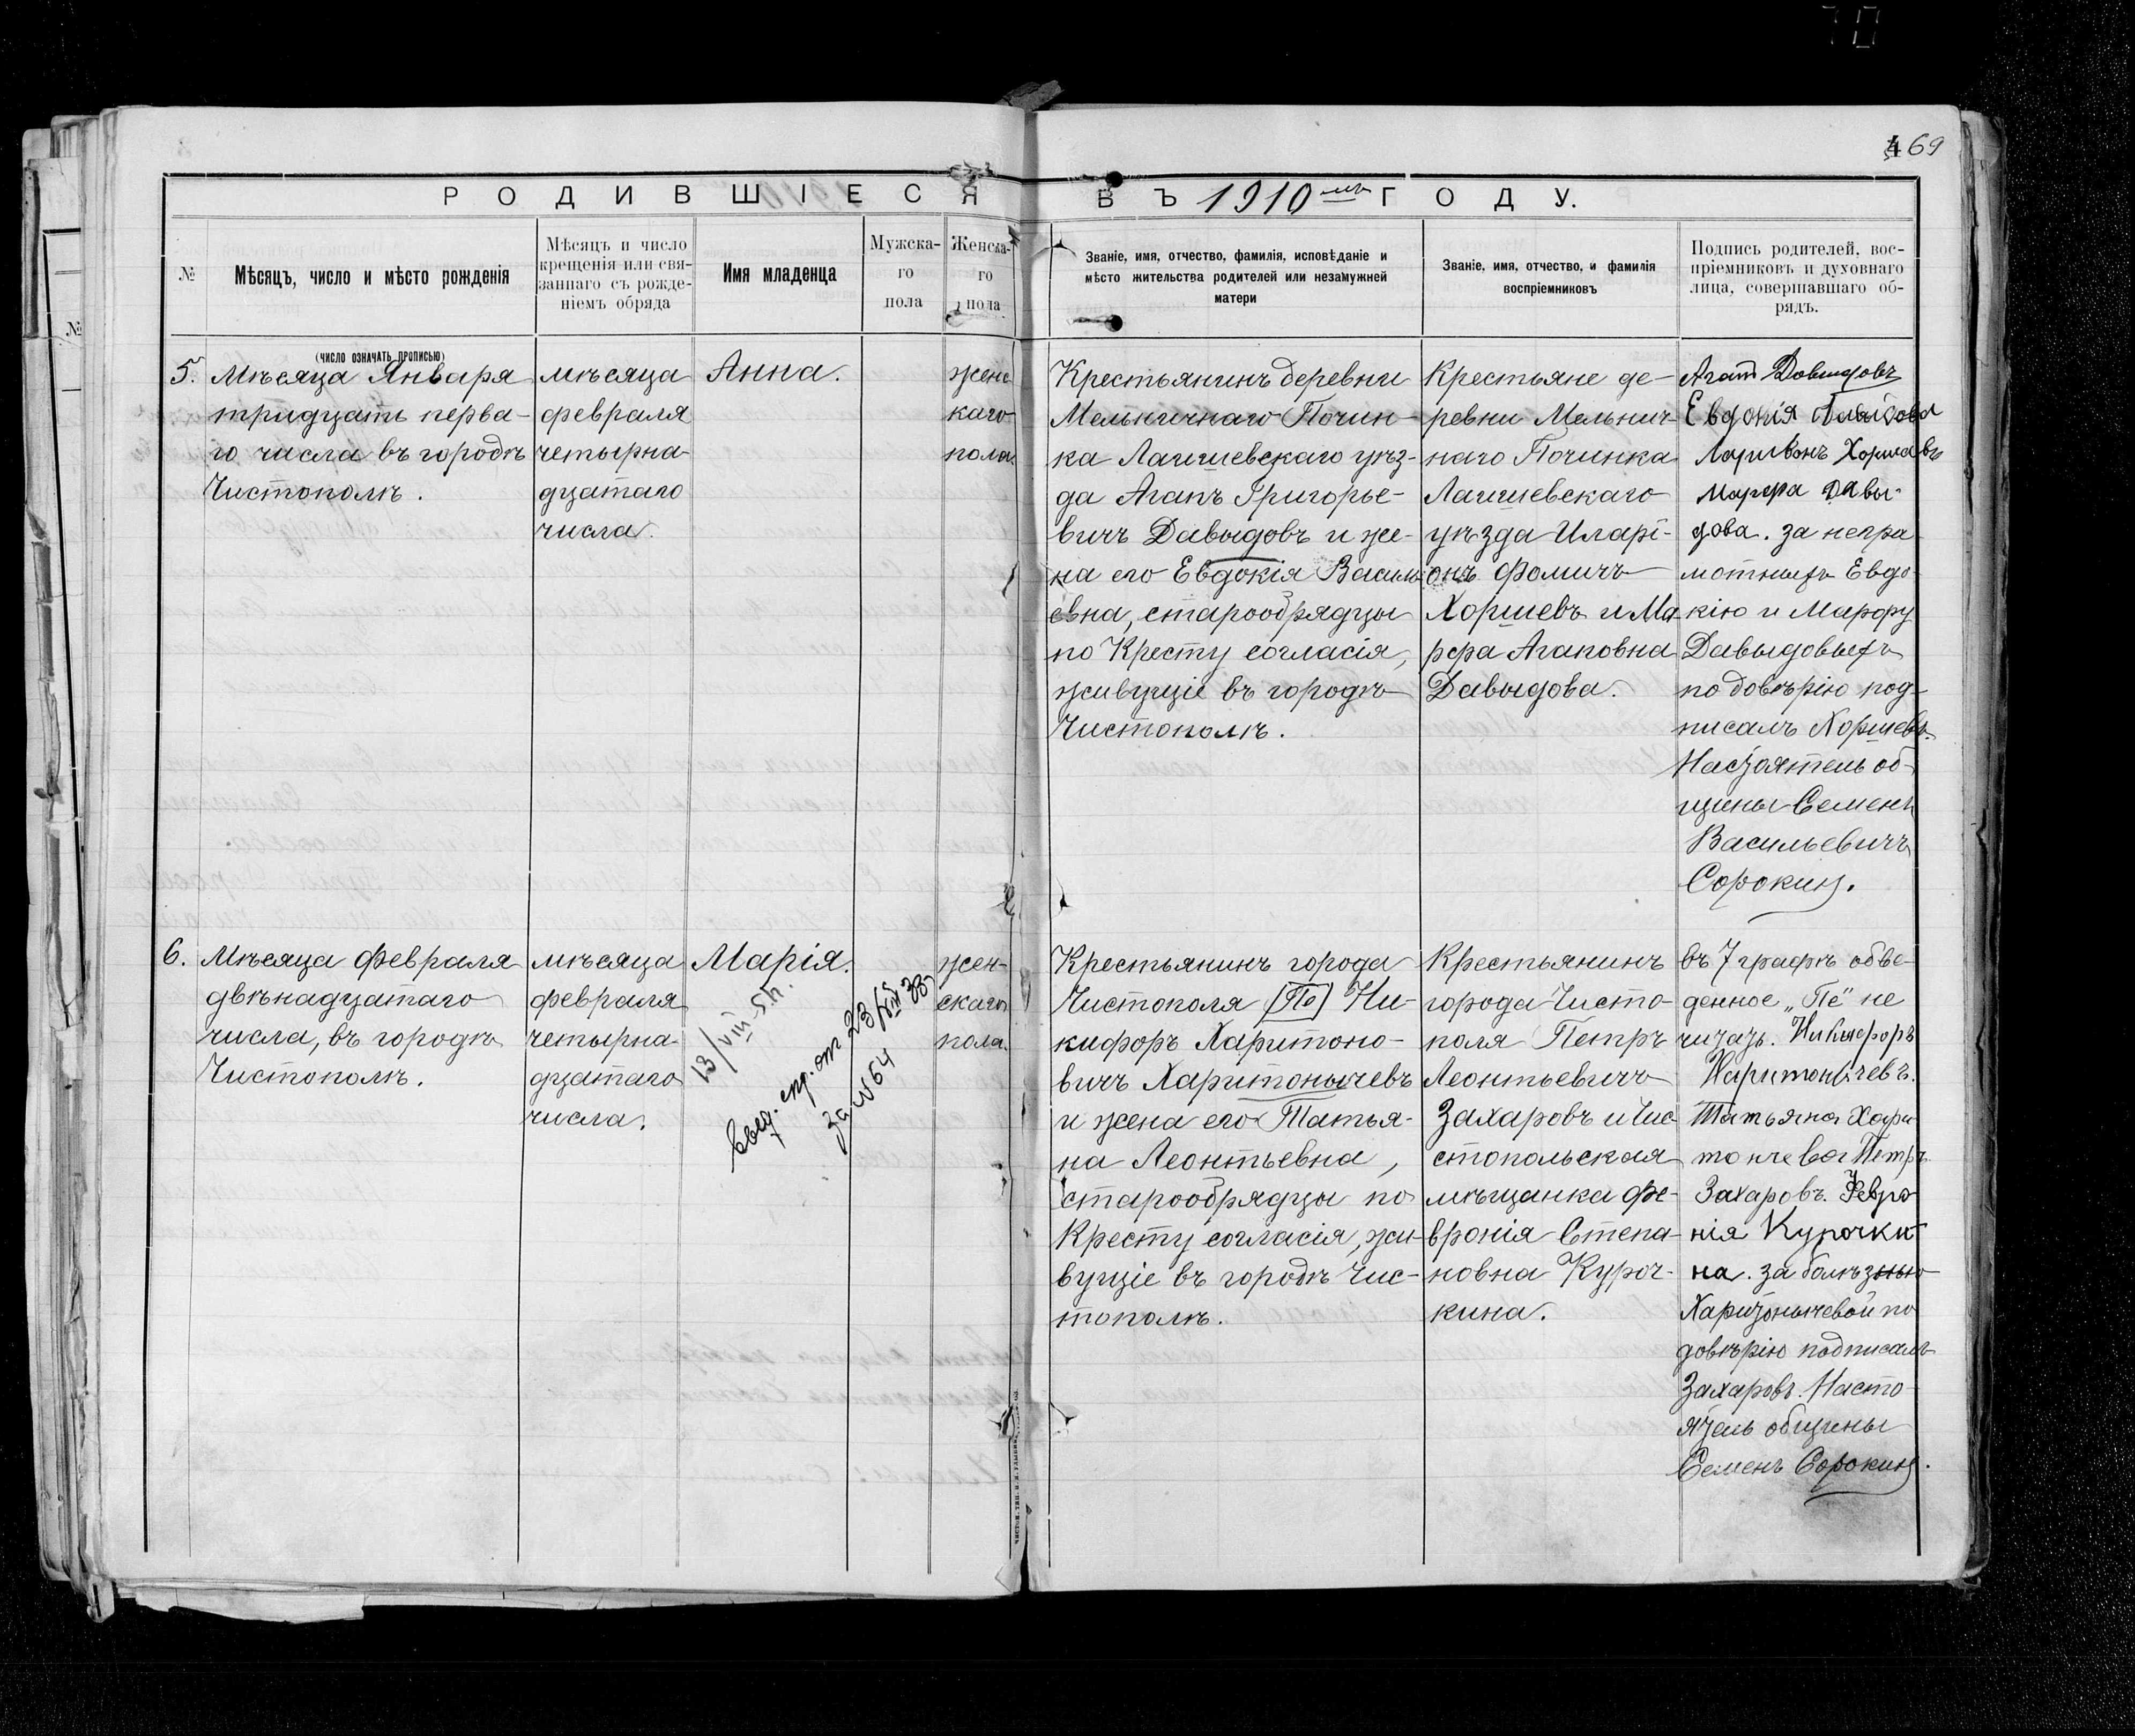 4 69
РОДИВШІЕСЯ ВЪ 1910мъ ГОДУ.
№
Мѣсяцъ, число и мѣсто рожденія
Мѣсяцъ и число
крещенія или свя-
заннаго съ рожде-
ніемъ обряда
Имя младенца
Мужска-
го
пола
Женска-
го
пола
Званіе, имя, отчество, фамилія, исповѣданіе и
мѣсто жительства родителей или незамужней
матери
Званіе, имя, отчество, и фамилія
воспріемниковъ
Подпись родителей, вос-
пріемниковъ и духовнаго
лица, совершавшаго об-
рядъ.
(число означать прописью)
5.
Мѣсяца Января
тридцать перва-
го числа въ городѣ
Чистополѣ.
мѣсяца
февраля
четырна-
дцатаго
числа.
Анна.
женс
каго
пола.
Крестьянинъ деревни
Мельничнаго Почин-
ка Лаишевскаго уѣз-
да Агапъ Григорье-
вичъ Давыдовъ и же-
на его Евдокія Василь
евна, старообрядцы
по Кресту согласія,
живущіе въ городѣ
Чистополѣ.
Крестьяне де-
ревни Мельнич-
наго Починка
Лаишевскаго
уѣзда Иларі-
онъ Фомичъ
Хоршевъ и Ма-
рфа Агаповна
Давыдова.
Агап Довыдовъ
Евдокія Давыдова
Ларивонъ
Марфа Давы-
дова. за негра
мотныхъ Евдо
кію и Марфу
Давыдовыхъ
по довѣрію под-
писалъ Хоршевъ.
Настоятель об-
щины Семенъ
Васильевичъ
Сорокинъ.
6.
Мѣсяца февраля
двѣнадцатаго
числа, въ городѣ
Чистополѣ.
мѣсяца
февраля
четырна-
дцатаго
числа.
Марія.
13/VIII-51.
выд. спр. от 23/VIII 38
за № 64
жен-
скаго
пола.
Крестьянинъ города
Чистополя [Пе] Ни-
кифоръ Харитоно-
вичъ Харитонычевъ
и жена его Татья-
на Леонтьевна,
старообрядцы по
Кресту согласія, жи-
вущіе въ городѣ Чис-
тополѣ.
Крестьянинъ
города Чисто-
поля Петръ
Леонтьевичъ
Захаровъ и Чис-
топольская
мѣщанка Фе-
вронія Степа-
новна Куроч-
кина.
въ 7 графѣ обве-
денное „Пе" не
читать. Никифоръ
Харитонычевъ.
Татьяна Хари
тончева Петръ
Захаровъ. Февро
нія Курочки
на. за болѣзнью
Харитонычевой по
довѣрію подписалъ
Захаровъ. Насто
ятель общины
Семенъ Сорокинъ.